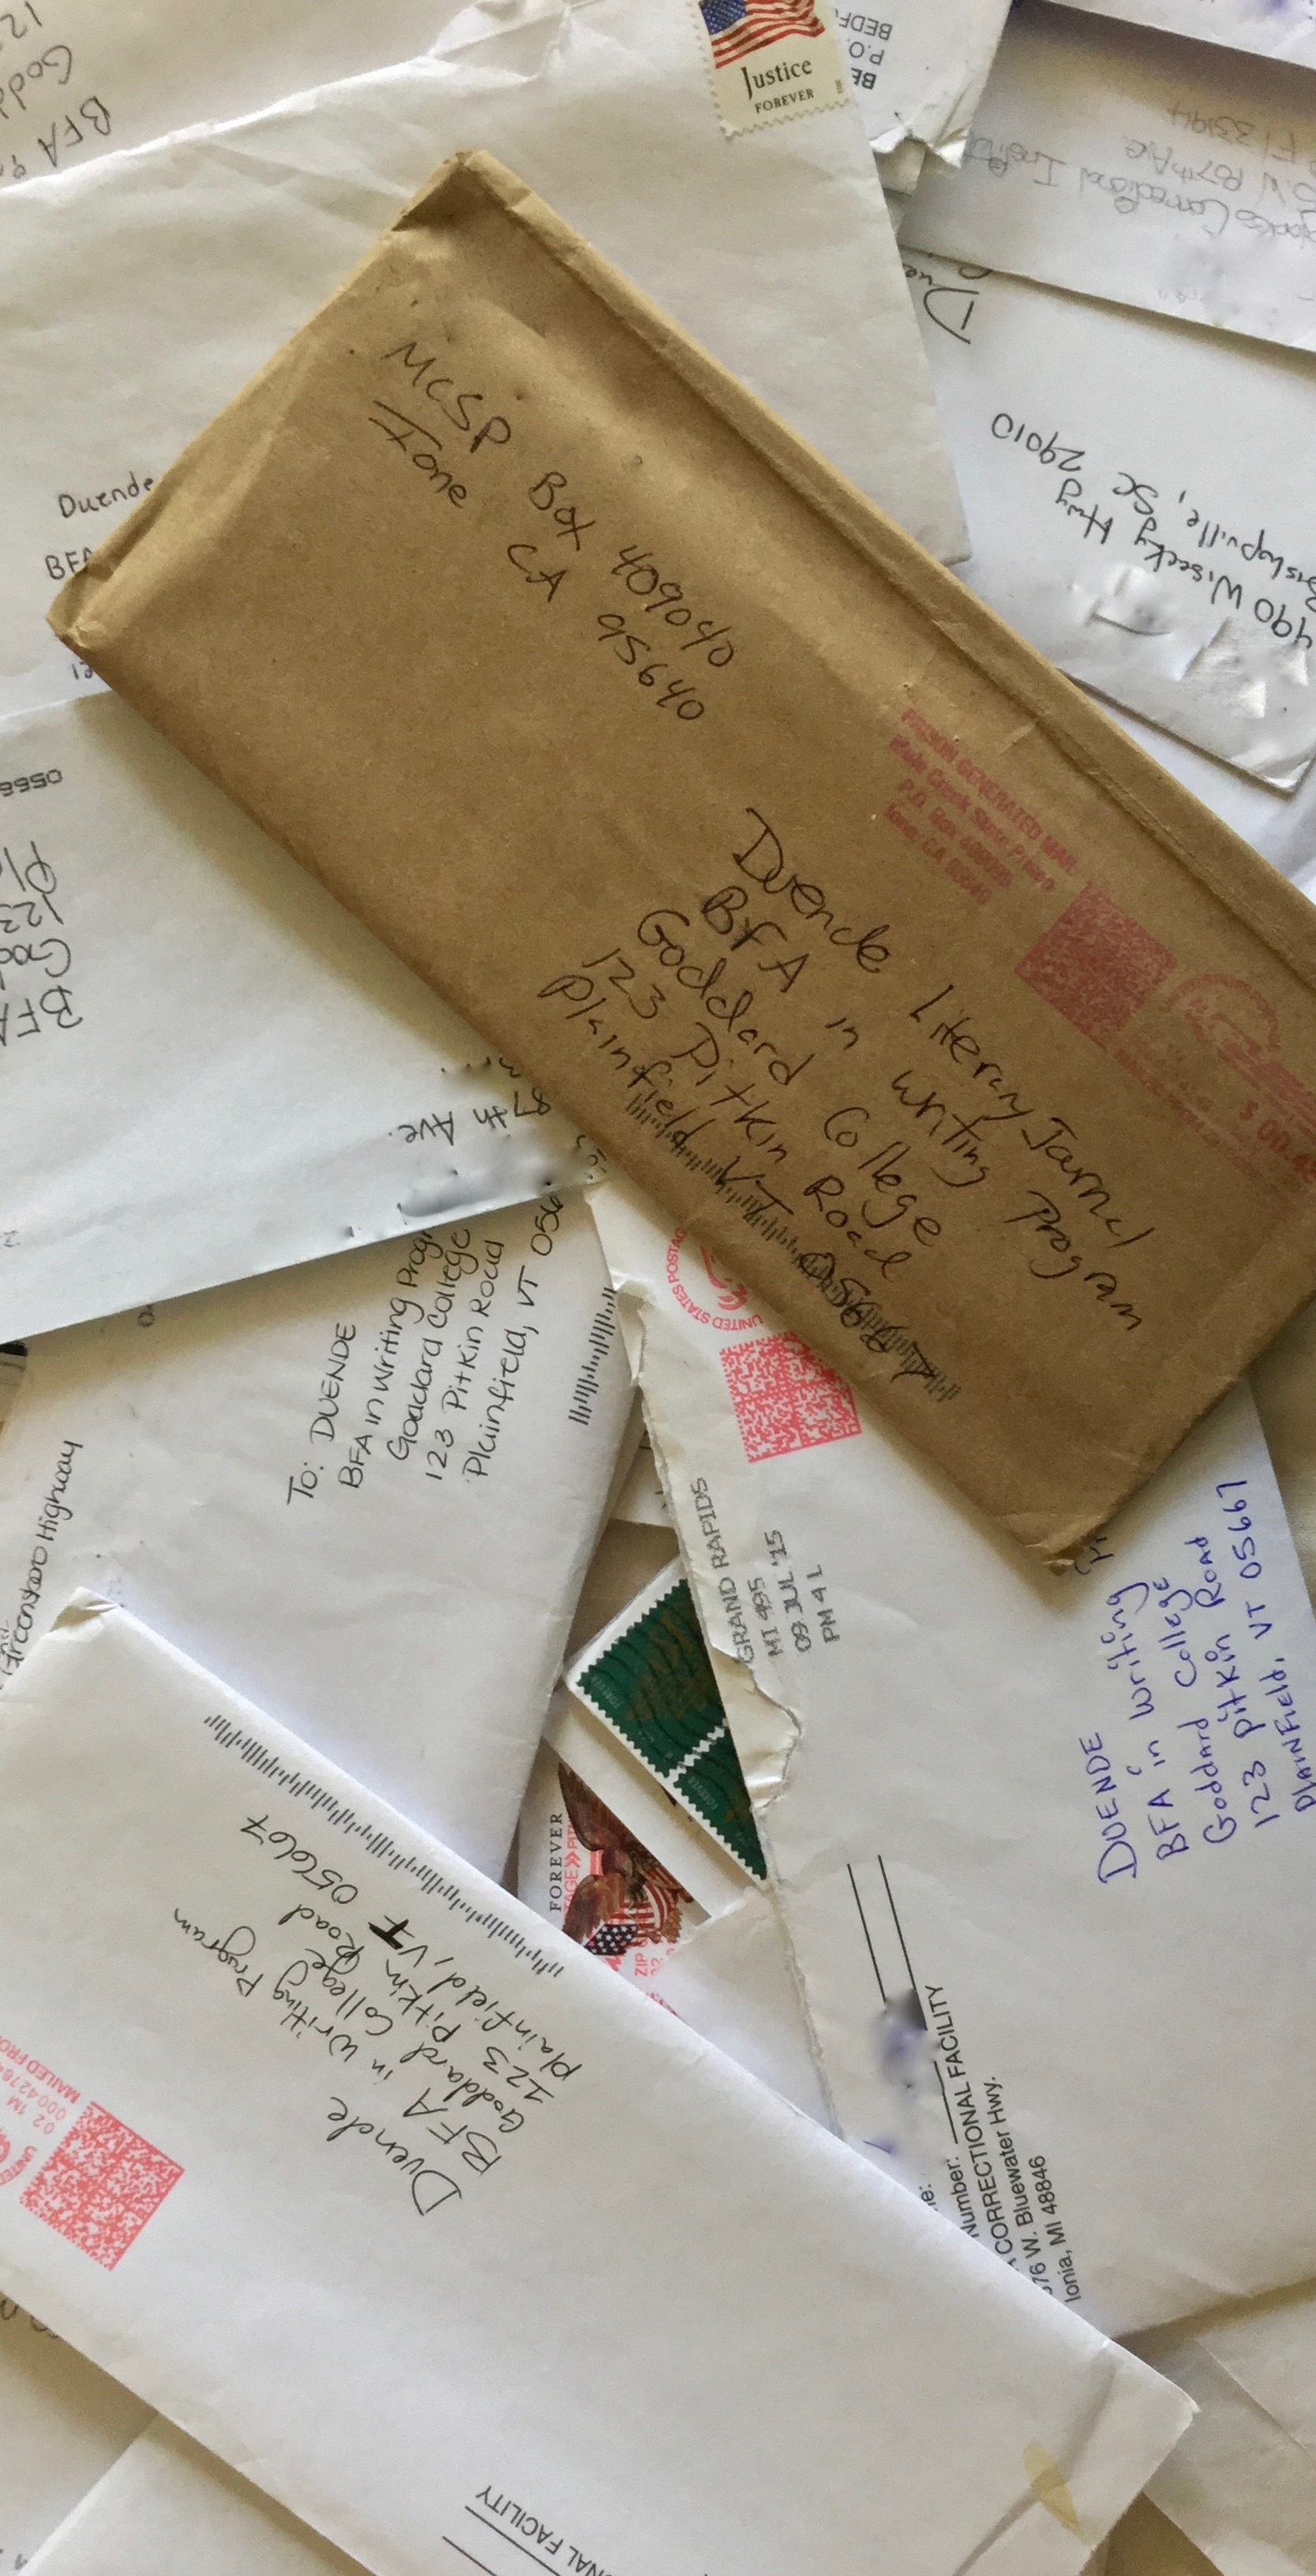 Justice
FOREVER
BEDF
P.O.
BE
BFA
Duende
BFA
MCSP Box 409040
Ione CA 95640
PRISON GENERATED MAIL
Mule Creek State Prison
Ione, CA 95640
Duende Literary Journal
BFA in Writing Program
Goddard College
123 Pitkin Road
Plainfield VT 05667
490 Wisacky Hwy
Bishopville, SC 29010
Correctional Instit
S.W 187th Ave
Fl 33194
0566
Pl
123
God
BFA
87th Ave.
To: DUENDE
BFA in Writing Progr
Goddard College
123 Pitkin Road
Plainfield, VT 056
Greensboro Highway
UNITED STATES POSTAG
GRAND RAPIDS
MI 495
09 JUL '15
PM 4 L
DUENDE
BFA in Writing
Goddard College
123 Pitkin Road
Plainfield, VT 05667
FOREVER
FOREVER
FOREVER
ZIP
Number:
CORRECTIONAL FACILITY
576 W. Bluewater Hwy.
Ionia, MI 48846
Duende
BFA in Writing Program
Goddard College
123 Pitkin Road
Plainfield, VT 05667
02 1M
MAILED FRO
NAL FACILITY